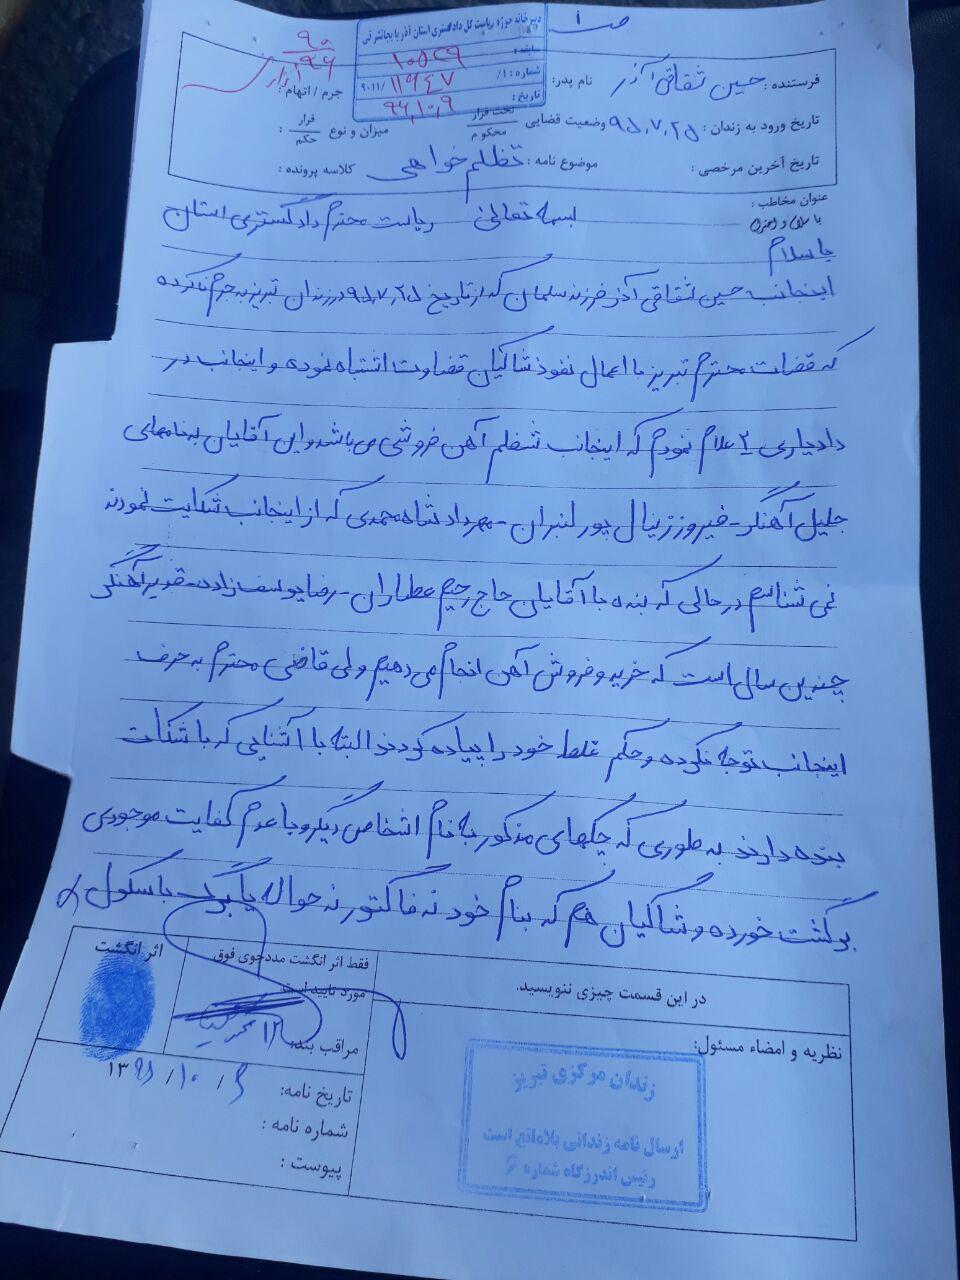 ص ۱
دبیرخانه حوزه ریاست کل دادگستری استان آذربایجانشرقی
سابقه: ۱۰۵۲۹
شماره: ۱/ ۹۰۱۱/ ۱۱۹۴۷
تاریخ: ۹۶,۱۰,۹
فرستنده: حسین ثقاقی آذر نام پدر: جرم / اتهام:
تاریخ ورود به زندان: ۹۵,۷,۲۵ وضعیت قضایی تحت قرار محکوم میزان و نوع قرار حکم :
تاریخ آخرین مرخصی: موضوع نامه: تظلم خواهی کلاسه پرونده:
عنوان مخاطب: بسمه تعالی ریاست محترم دادگستری استان
با سلام و احترام
با سلام
اینجانب حسین ثقاقی آذر فرزند سلمان که از تاریخ ۹۵,۷,۲۵ در زندان تبریز به جرم نکرده
که قضات محترم تبریز با اعمال نفوذ شاکیان قضاوت اشتباه نموده و اینجانب در
دادیاری ۲ اعلام نمودم که اینجانب شغلم آهن فروشی می باشد و این آقایان به نامهای
جلیل آهنگر - فیروز زینال پور لنبران - مهرداد شاه محمدی که از اینجانب شکایت نمودند
نمی شناسم در حالی که بنده با آقایان حاج رحیم عطاران - رضا یوسف زاده - قدیر آهنگر
چندین سال است که خرید و فروش آهن انجام می دهیم ولی قاضی محترم به حرف
اینجانب توجه نکرده و حکم غلط خود را پیاده کردند البته با آشنایی که با شکات
بنده دارند به طوری که چکهای مذکور به نام اشخاص دیگر و با عدم کفایت موجودی
برگشت خورده و شاکیان هم که بنام خود نه فاکتور نه حواله یا برگ باسکول
اثر انگشت
فقط اثر انگشت مددجوی فوق
مورد تایید است
مراقب بند:
در این قسمت چیزی ننویسید.
نظریه و امضاء مسئول:
تاریخ نامه: ۹ / ۱۰ / ۱۳۹۶
شماره نامه:
پیوست:
زندان مرکزی تبریز
ارسال نامه زندانی بلامانع است
رئیس اندرزگاه شماره ۶